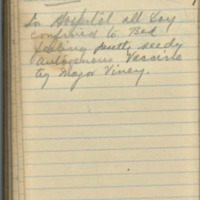 In Hospital all Day
confined to Bed
feeling pretty seedy
Autogenous Vaccine
by Major Viney.